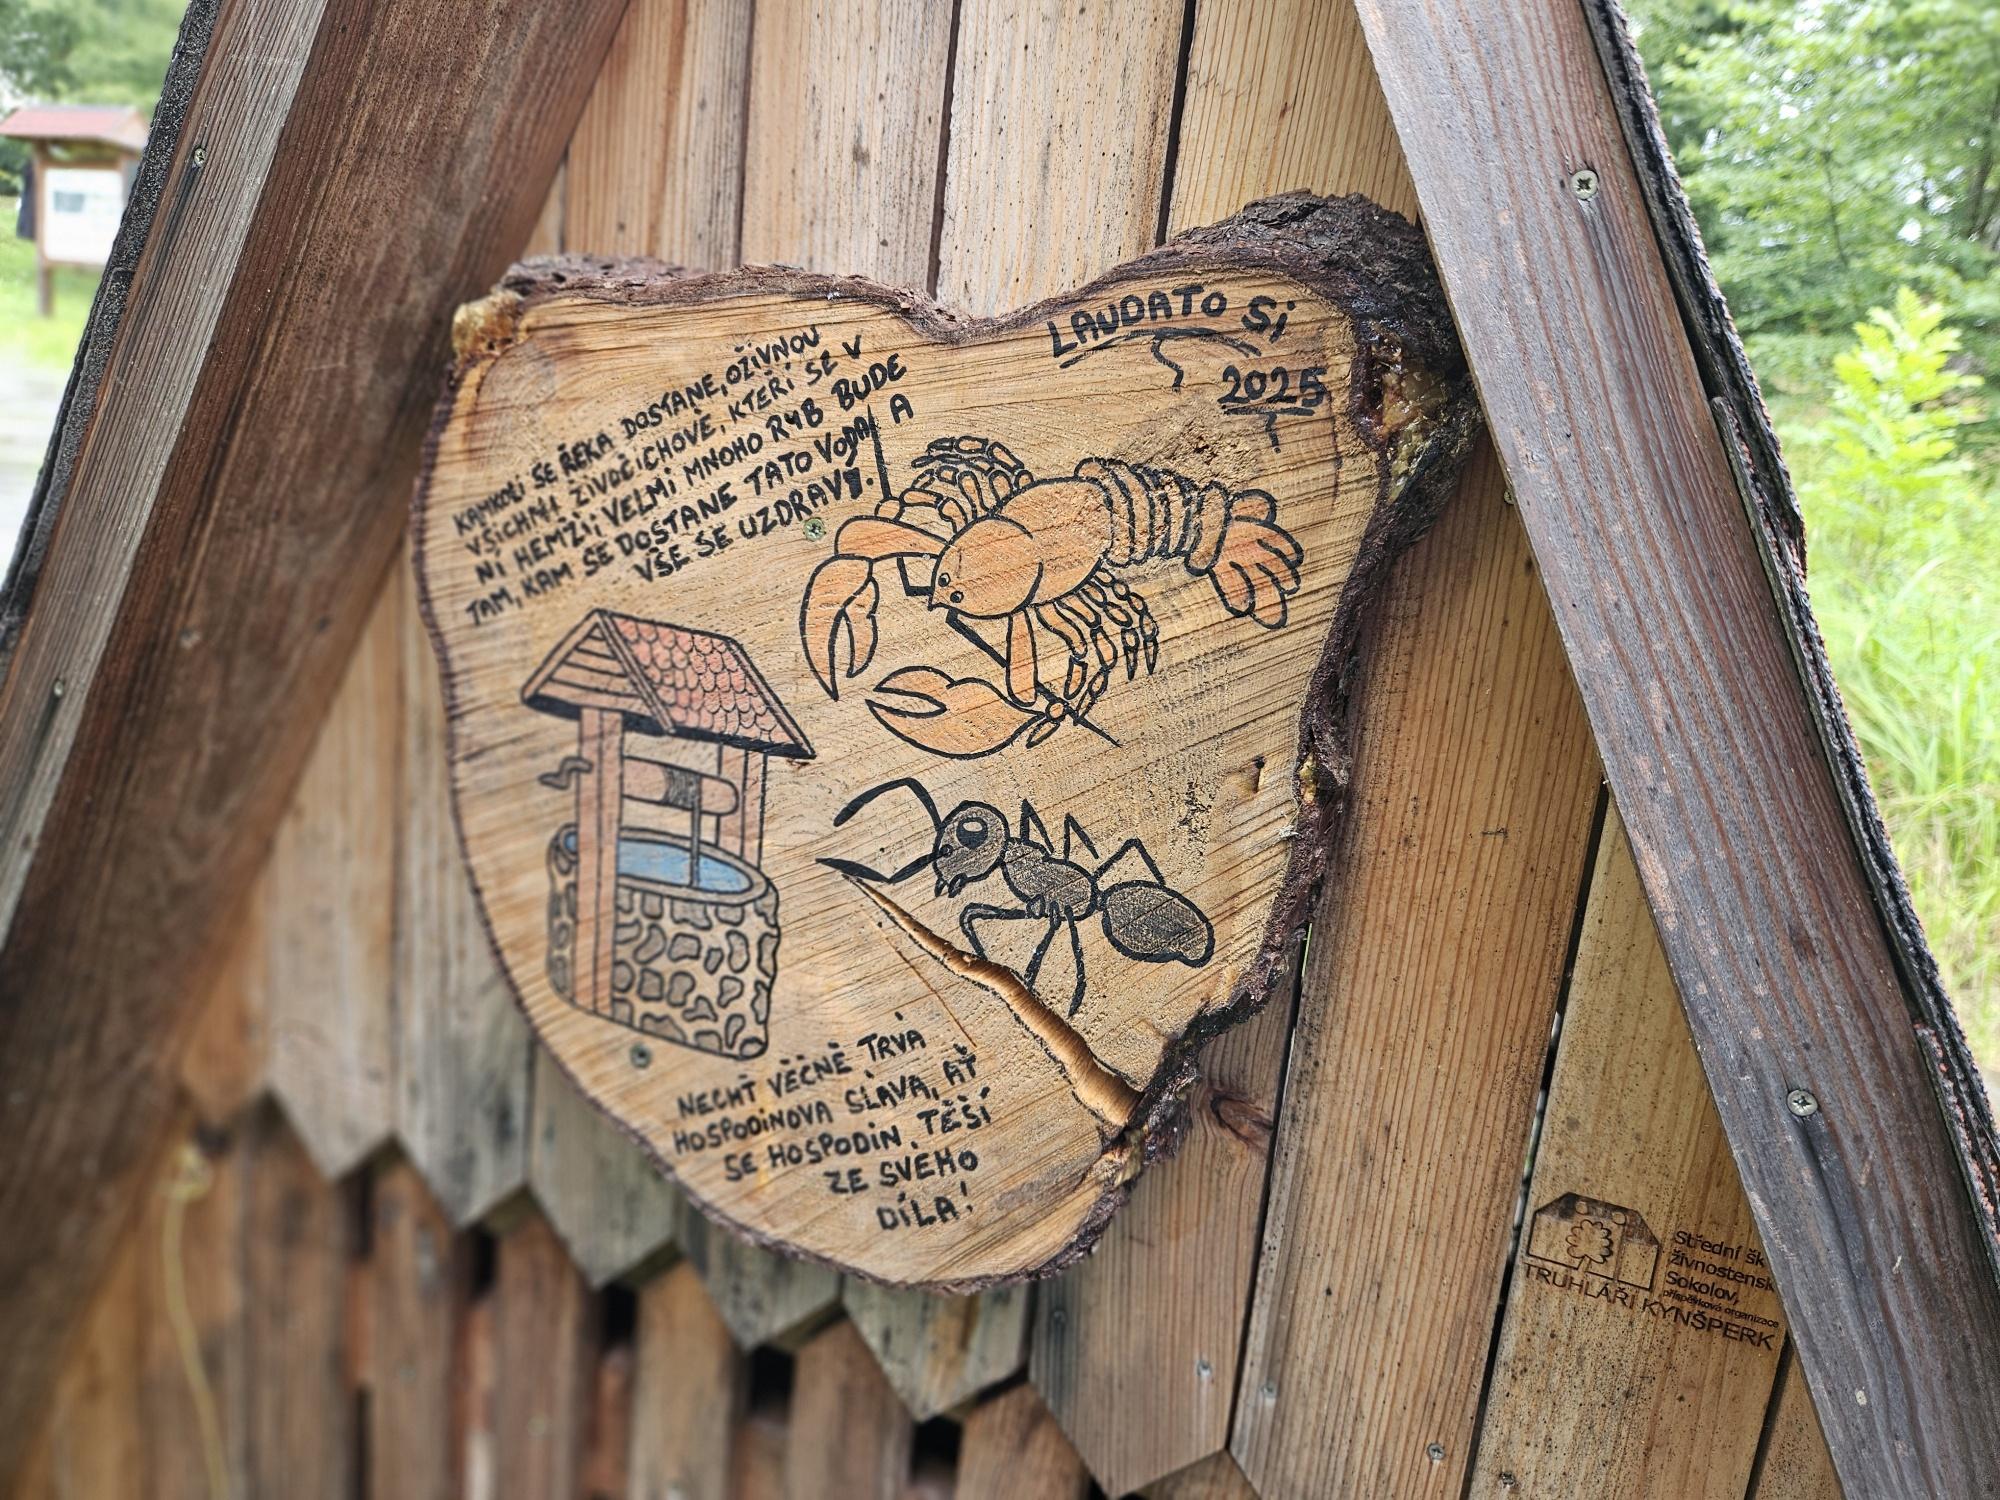 LAUDATO Si
2025
KAMKOLi SE ŘEKA DOSTANE, OŽiVNOU
VŠiCHNi ŽiVOČiCHOVÉ, KTEŘÍ SE V
Ní HEMŽí; VELMi MNOHO RYB BUDE
TAM, KAM SE DOSTANE TATO VODA, A
VŠE SE UZDRAVí.
NECHŤ VĚČNĚ TRVÁ
HOSPODiNOVA SLÁVA, AŤ
SE HOSPODiN TĚŠÍ
ZE SVÉHO
DíLA!
Střední šk
živnostensk
Sokolov,
příspěvková organizace
TRUHLÁŘI KYNŠPERK